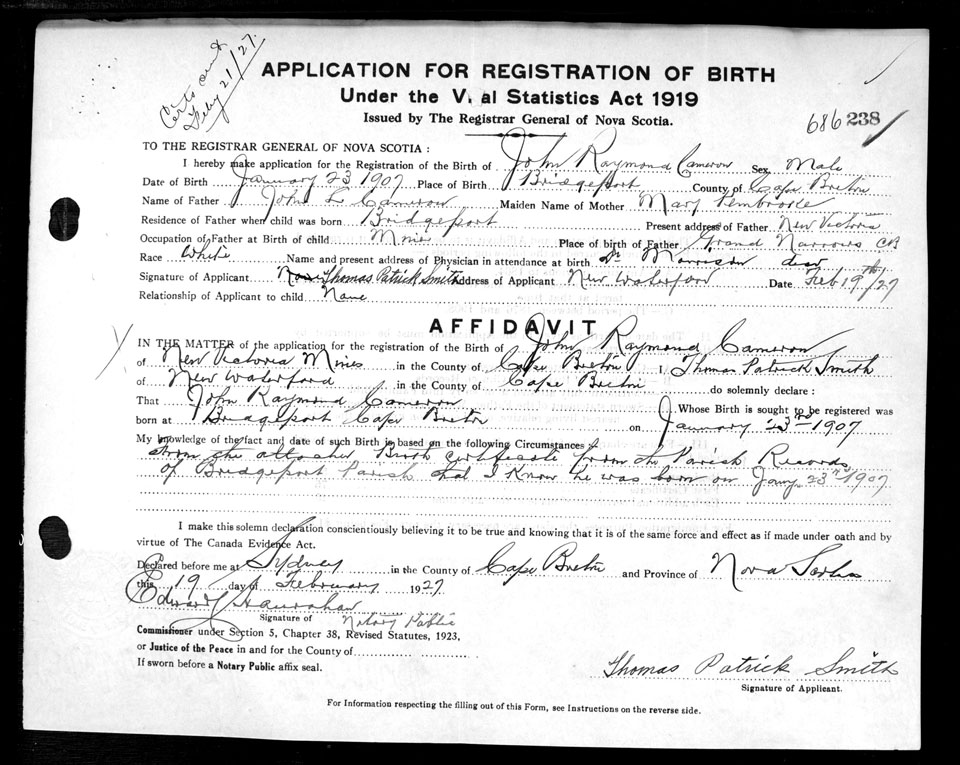 Certs sent
Feby 21/27.
APPLICATION FOR REGISTRATION OF BIRTH
Under the V al Statistics Act 1919
Issued by The Registrar General of Nova Scotia.
686 238
TO THE REGISTRAR GENERAL OF NOVA SCOTIA :
I hereby make application for the Registration of the Birth of John Raymond Cameron Sex Male
Date of Birth January 23 1907 Place of Birth Bridgeport County of Cape Breton
Name of Father John L Cameron Maiden Name of Mother Mary Pembroke
Residence of Father when child was born Bridgeport Present address of Father New Victoria
Occupation of Father at Birth of child Miner Place of birth of Father Grand Narrows CB
Race White Name and present address of Physician in attendance at birth Dr Morrison dead
Signature of Applicant Thomas Patrick Smith Address of Applicant New Waterford Date Feb 19th/27
Relationship of Applicant to child None
AFFIDAVIT
IN THE MATTER of the application for the registration of the Birth of John Raymond Cameron
of New Victoria Mines in the County of Cape Breton I, Thomas Patrick Smith
of New Waterford in the County of Cape Breton do solemnly declare :
That John Raymond Cameron Whose Birth is sought to be registered was
born at Bridgeport Cape Breton on January 23rd 1907
My knowledge of the fact and date of such Birth is based on the following Circumstances :
From the attached Birth certificate from the Parish Records
of Bridgeport Parish that I Know he was born on Jany 23rd 1907
I make this solemn declaration conscientiously believing it to be true and knowing that it is of the same force and effect as if made under oath and by
virtue of The Canada Evidence Act.
Declared before me at Sydney in the County of Cape Breton and Province of Nova Scotia
this 19 day of February 1927
Edward Hanrahan
Signature of Notary Public
Commissioner under Section 5, Chapter 38, Revised Statutes, 1923,
or Justice of the Peace in and for the County of
If sworn before a Notary Public affix seal.
Thomas Patrick Smith
Signature of Applicant.
For Information respecting the filling out of this Form, see Instructions on the reverse side.